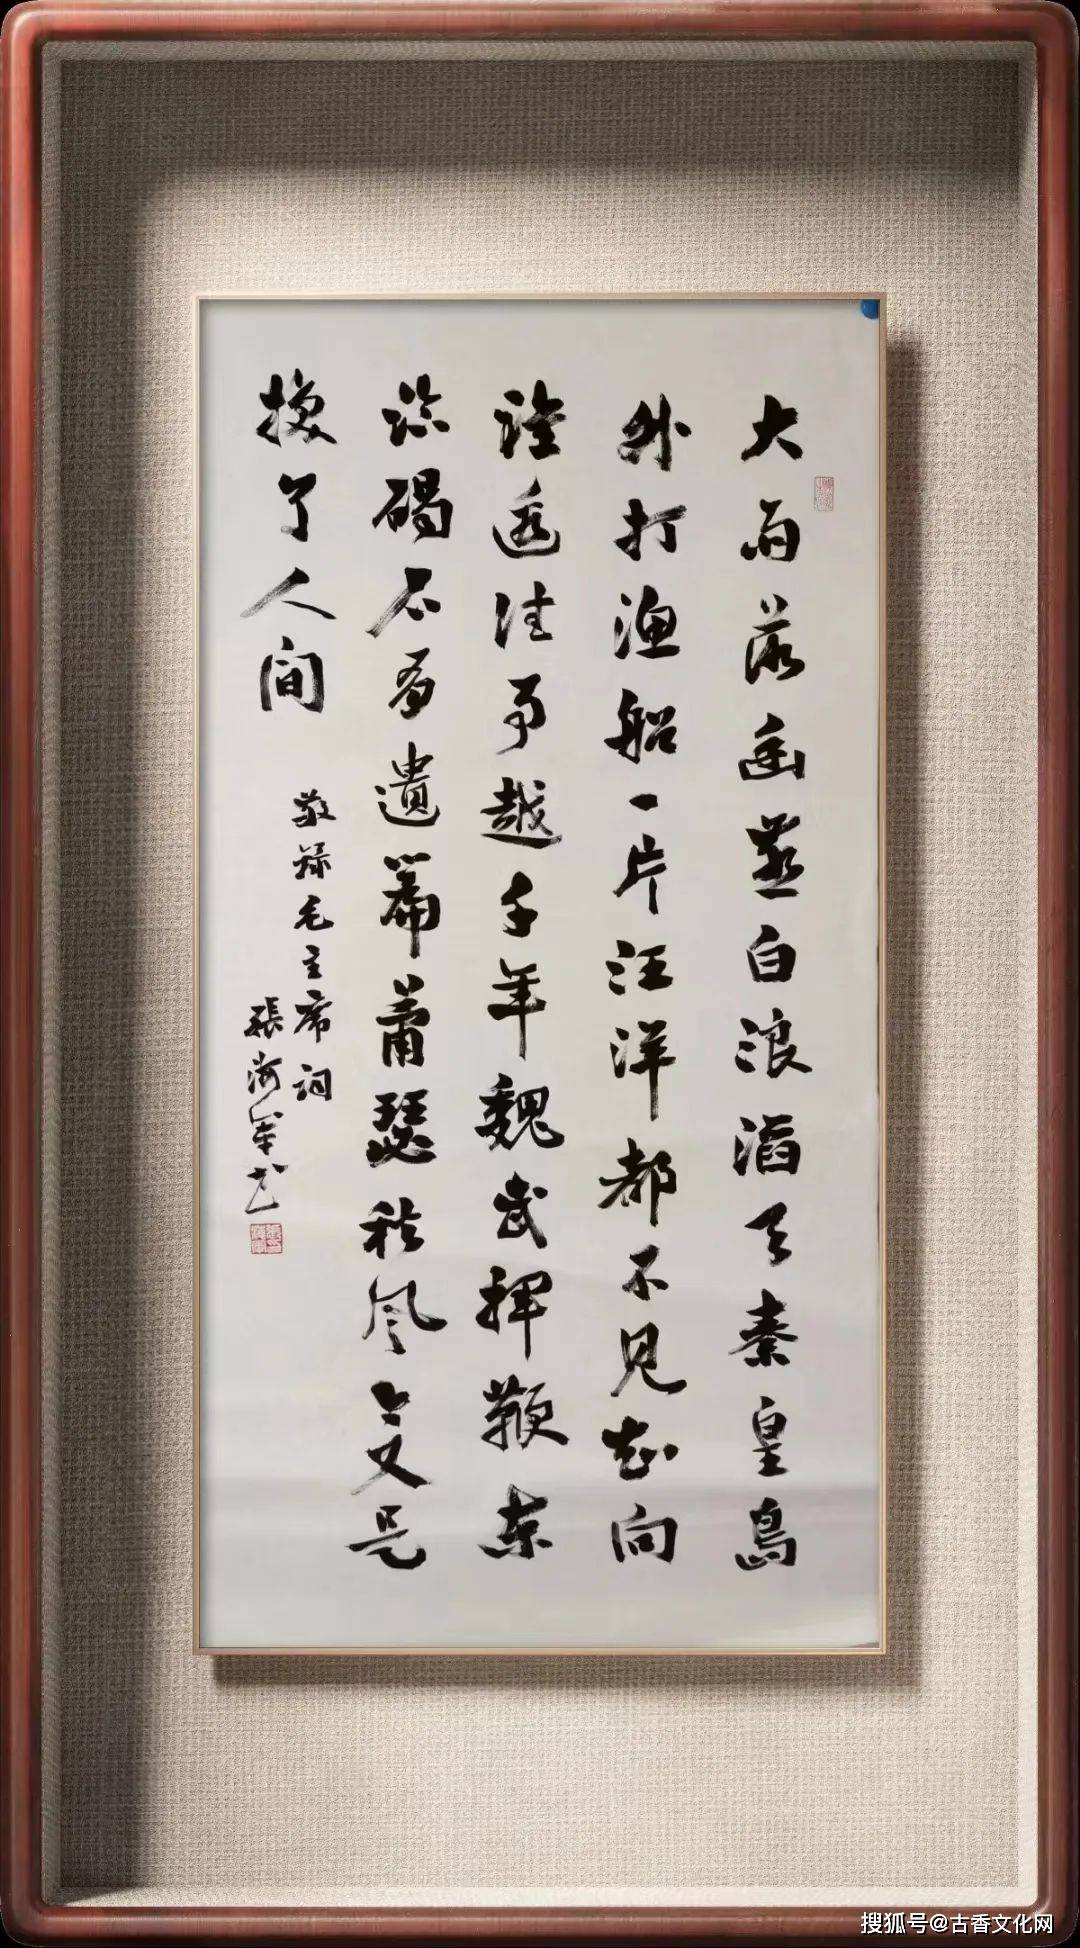 大雨落幽燕白浪滔天秦皇島
外打渔船一片汪洋都不见知向
誰邊往事越千年魏武揮鞭东
临碣石有遺篇蕭瑟秋风今又是
换了人间
敬録毛主席词
張海軍书
搜狐号@古香文化网